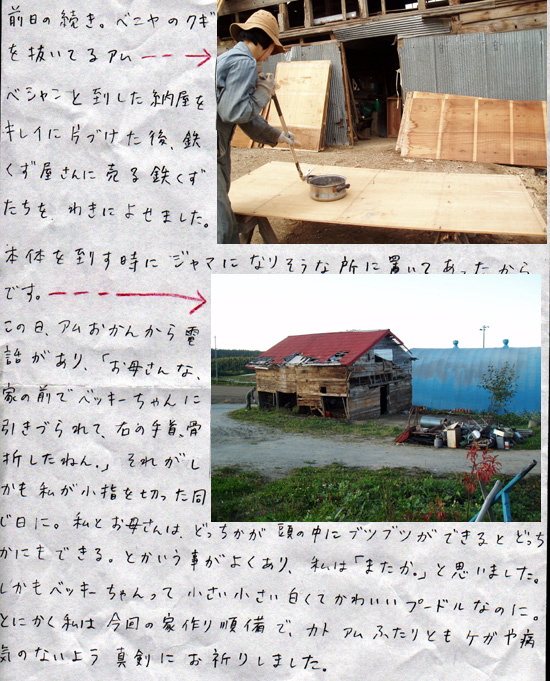 前日の続き。ベニヤのクギ
を抜いてるアム
ペシャンと到した納屋を
キレイに片づけた後、鉄
くず屋さんに売る鉄くず
たちを、わきによせました。
本体を到す時にジャマになりそうな所に置いてあったから
です。
この日、アムおかんから電
話があり、「お母さんな、
家の前でベッキーちゃんに
引きづられて、右の手首、骨
折したねん。」それがし
かも私が小指を切った同
じ日に。私とお母さんは、どっちかが頭の中にブツブツができるとどっち
かにもできる。とかいう事がよくあり、私は「またか。」と思いました。
しかもベッキーちゃんって小さい小さい白くてかわいいプードルなのに。
とにかく私は今回の家作り順備で、カト アムふたりともケガや病
気のないよう真剣にお祈りしました。